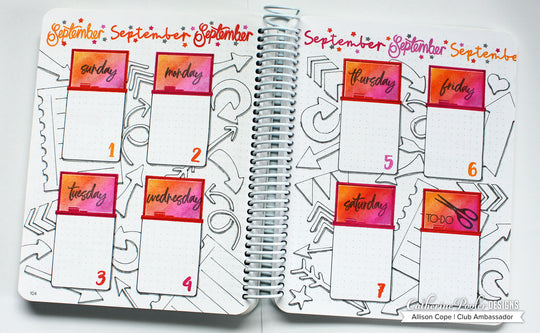 September September September
September September September
sunday
monday
1
2
tuesday
wednesday
3
4
104
thursday
friday
5
6
saturday
TO-DO
7
Catherine Pooler DESIGNS
Allison Cope | Club Ambassador